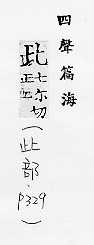 四聲篇海
此七尔切
(此部.P329)